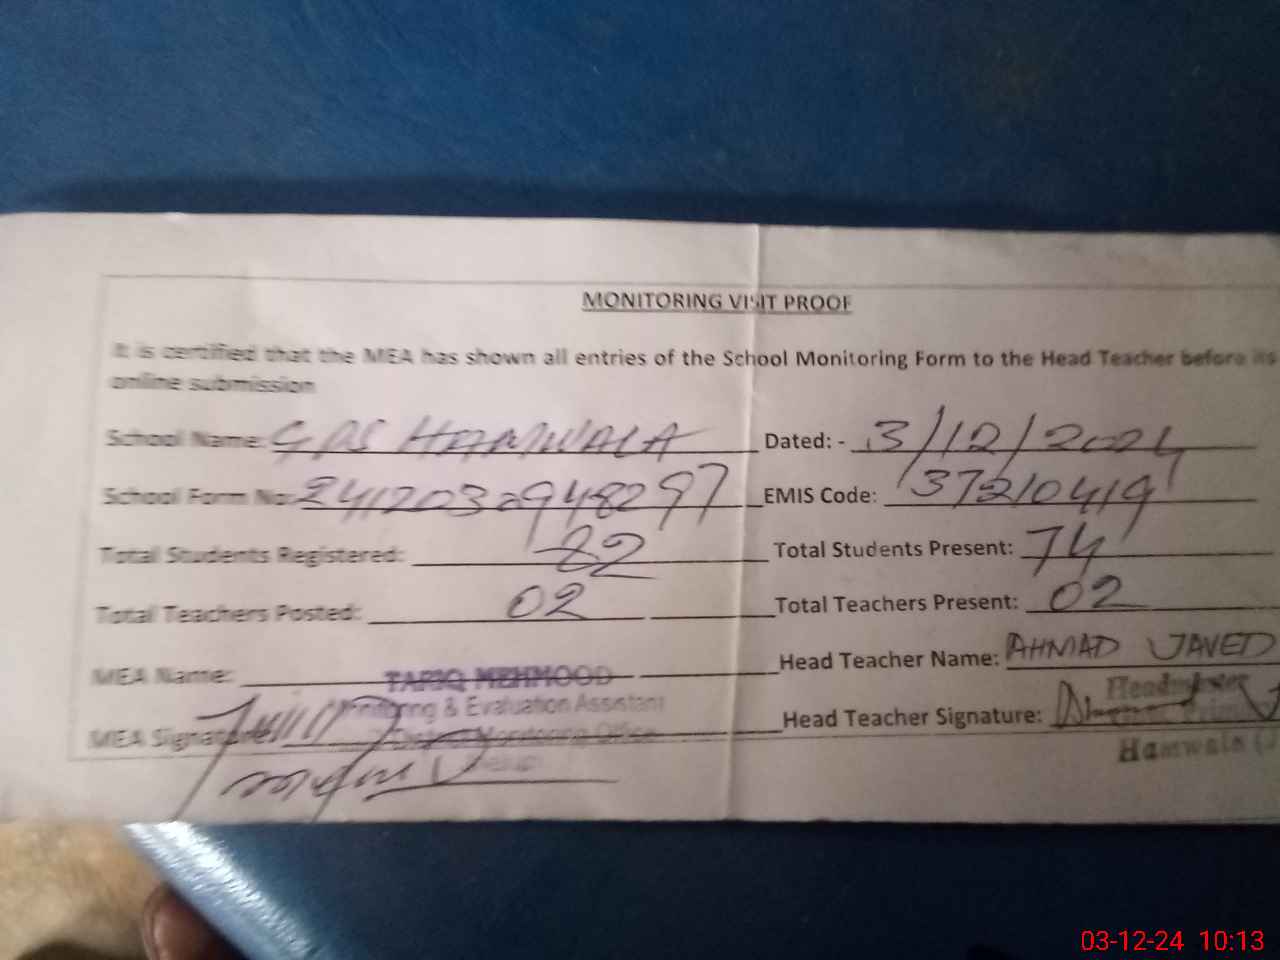 MONITORING VISIT PROOF
It is certified that the MEA has shown all entries of the School Monitoring Form to the Head Teacher before its
online submission
School Name: GPS HAMWALA Dated: - 3/12/2024
School Form No: 2412032948297 EMIS Code: 37210419
Total Students Registered: 82 Total Students Present: 74
Total Teachers Posted: 02 Total Teachers Present: 02
MEA Name: TARIQ MEHMOOD Head Teacher Name: AHMAD JAVED
Monitoring & Evaluation Assistant
MEA Signature: District Monitoring Office Head Teacher Signature:
Hamwala
03-12-24 10:13